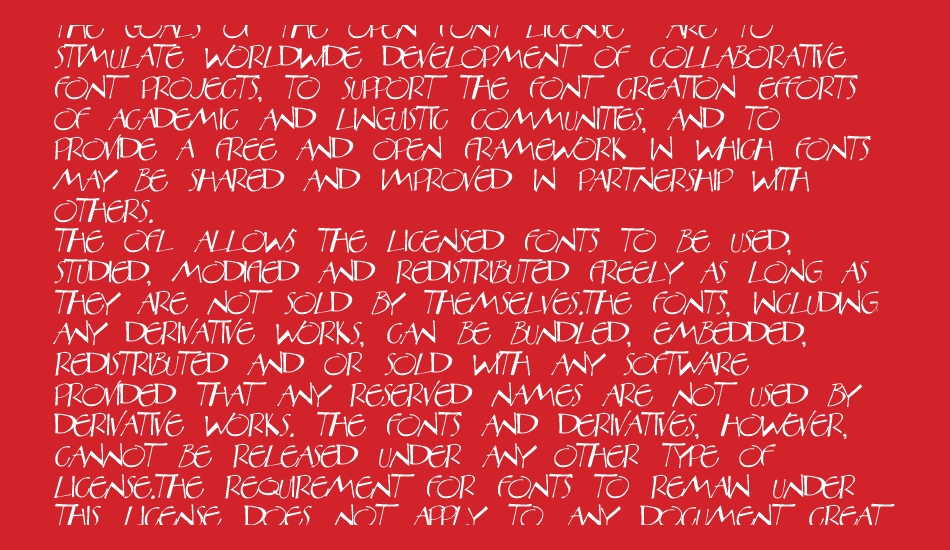 THE GOALS OF THE OPEN FONT LICENSE ARE TO
STIMULATE WORLDWIDE DEVELOPMENT OF COLLABORATIVE
FONT PROJECTS, TO SUPPORT THE FONT CREATION EFFORTS
OF ACADEMIC AND LINGUISTIC COMMUNITIES, AND TO
PROVIDE A FREE AND OPEN FRAMEWORK IN WHICH FONTS
MAY BE SHARED AND IMPROVED IN PARTNERSHIP WITH
OTHERS.
THE OFL ALLOWS THE LICENSED FONTS TO BE USED,
STUDIED, MODIFIED AND REDISTRIBUTED FREELY AS LONG AS
THEY ARE NOT SOLD BY THEMSELVES.THE FONTS, INCLUDING
ANY DERIVATIVE WORKS, CAN BE BUNDLED, EMBEDDED,
REDISTRIBUTED AND OR SOLD WITH ANY SOFTWARE
PROVIDED THAT ANY RESERVED NAMES ARE NOT USED BY
DERIVATIVE WORKS. THE FONTS AND DERIVATIVES, HOWEVER,
CANNOT BE RELEASED UNDER ANY OTHER TYPE OF
LICENSE.THE REQUIREMENT FOR FONTS TO REMAIN UNDER
THIS LICENSE DOES NOT APPLY TO ANY DOCUMENT CREAT